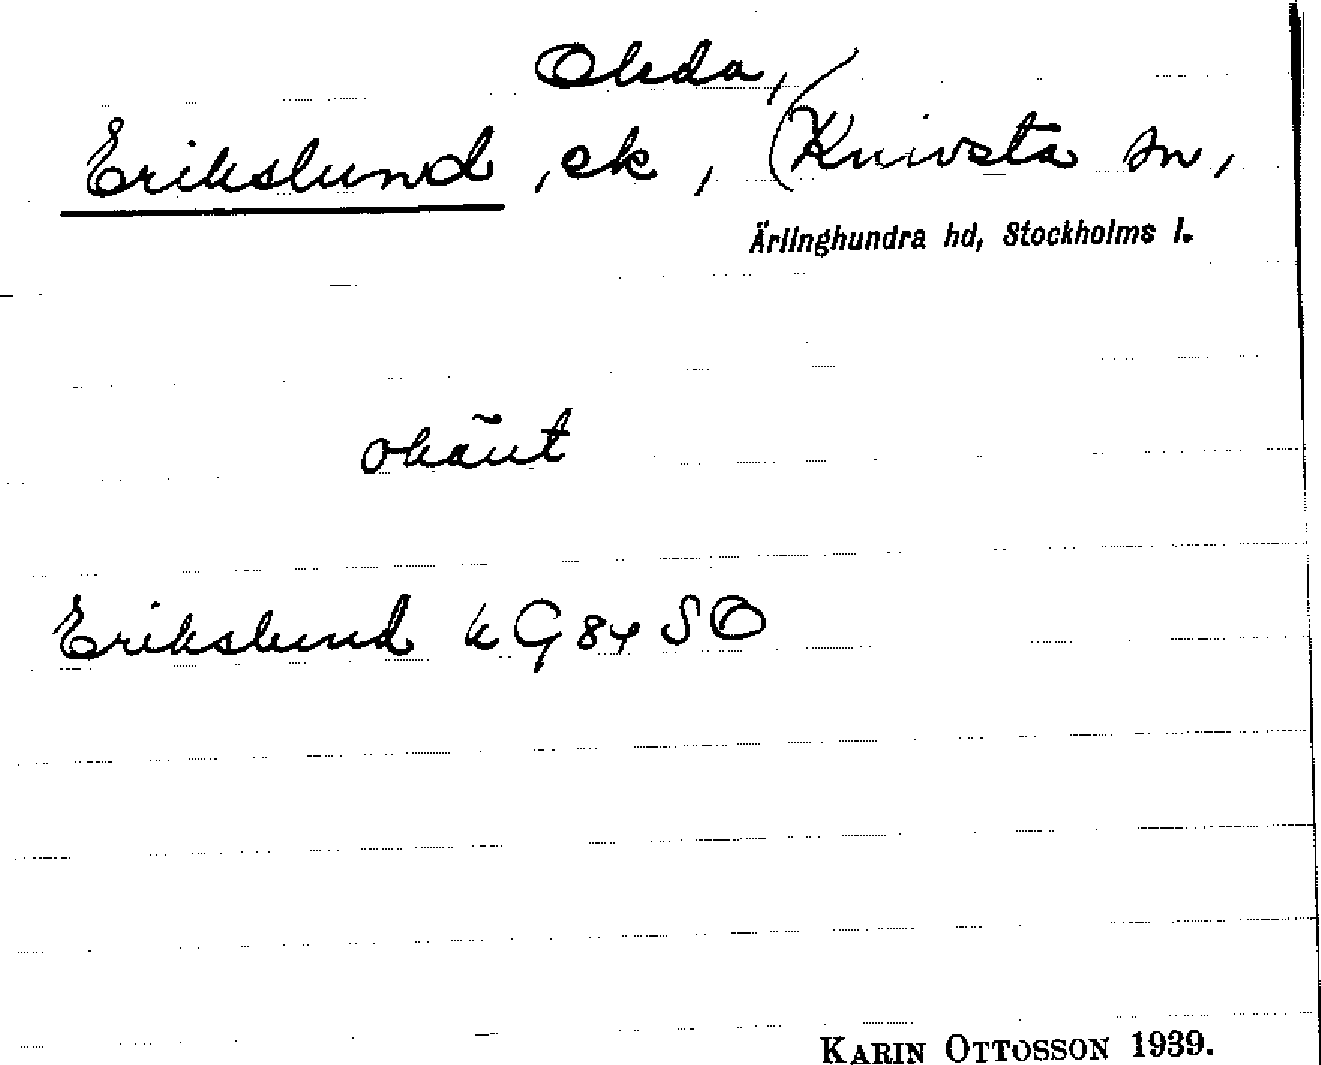 Erikslund, ek, Knivsta sn,
Ärlinghundra hd, Stockholms l.
okänt
Erikslund k G 84 SO
KARIN OTTOSSON 1939.